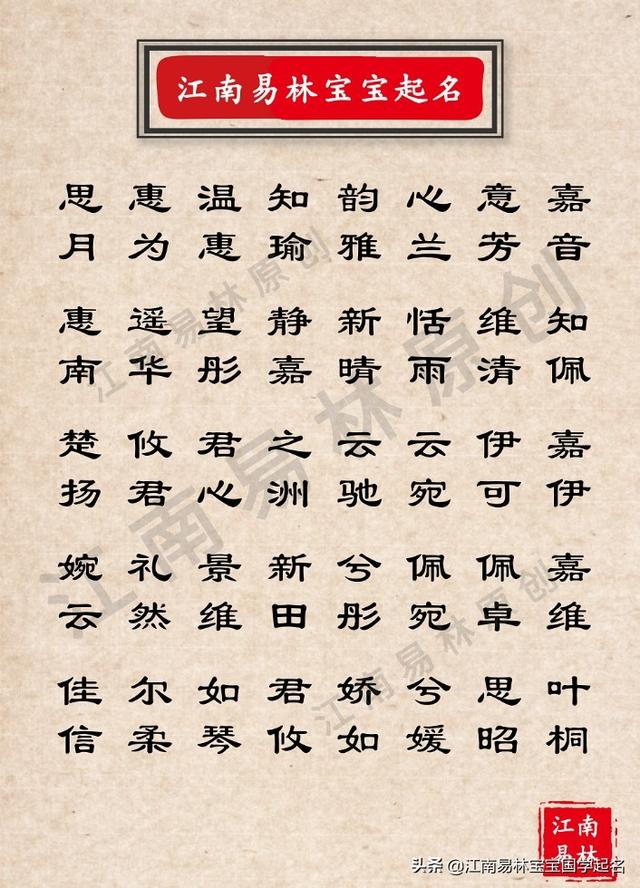 江南易林宝宝起名
思惠温知韵心意嘉
月为惠瑜雅兰芳音
惠遥望静新恬维知
南华彤嘉晴雨清佩
楚攸君之云云伊嘉
扬君心洲驰宛可伊
婉礼景新兮佩佩嘉
云然维田彤宛卓维
佳尔如君娇兮思叶
信柔琴攸如媛昭桐
江南易林原创
江南易林原创
江南易林原创
江南
易林
头条 @江南易林宝宝国学起名